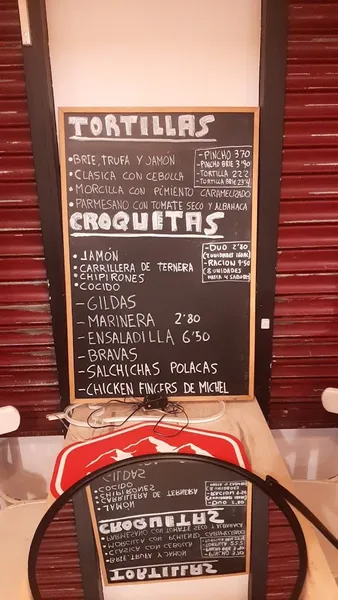 TORTILLAS
• BRIE, TRUFA Y JAMÓN
• CLASICA CON CEBOLLA
• MORCILLA CON PIMIENTO CARAMELIZADO
• PARMESANO CON TOMATE SECO Y ALBAHACA
- PINCHO 3'70
- PINCHO BRIE 3'90
- TORTILLA 22'2
- TORTILLA BRIE 23'4
CROQUETAS
• JAMÓN
• CARRILLERA DE TERNERA
• CHIPIRONES
• COCIDO
- DUO 2'80
- RACION 9'50
(8 UNIDADES
HASTA 4 SABORES)
- GILDAS
- MARINERA 2'80
- ENSALADILLA 6'50
- BRAVAS
- SALCHICHAS POLACAS
- CHICKEN FINGERS DE MICHEL